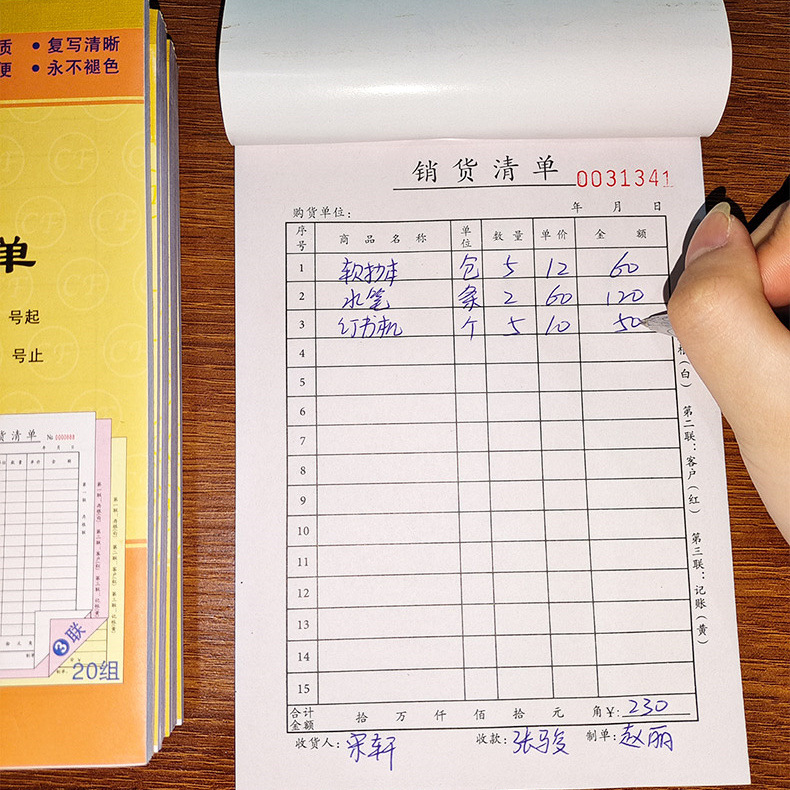 质 • 复写清晰
便 • 永不褪色
单
号起
号止
货清单 № 0000888
年 月 日
3联
20组
销货清单 0031341
购货单位： 年 月 日
序号 商品名称 单位 数量 单价 金额
1 软抄本 包 5 12 60
2 水笔 条 2 60 120
3 订书机 个 5 10 50
4
5
6
7
8
9
10
11
12
13
14
15
合计金额 拾 万 仟 佰 拾 元 角 ¥: 230
收货人：宋轩 收款：张骏 制单：赵丽
根（白） 第二联：客户（红） 第三联：记账（黄）